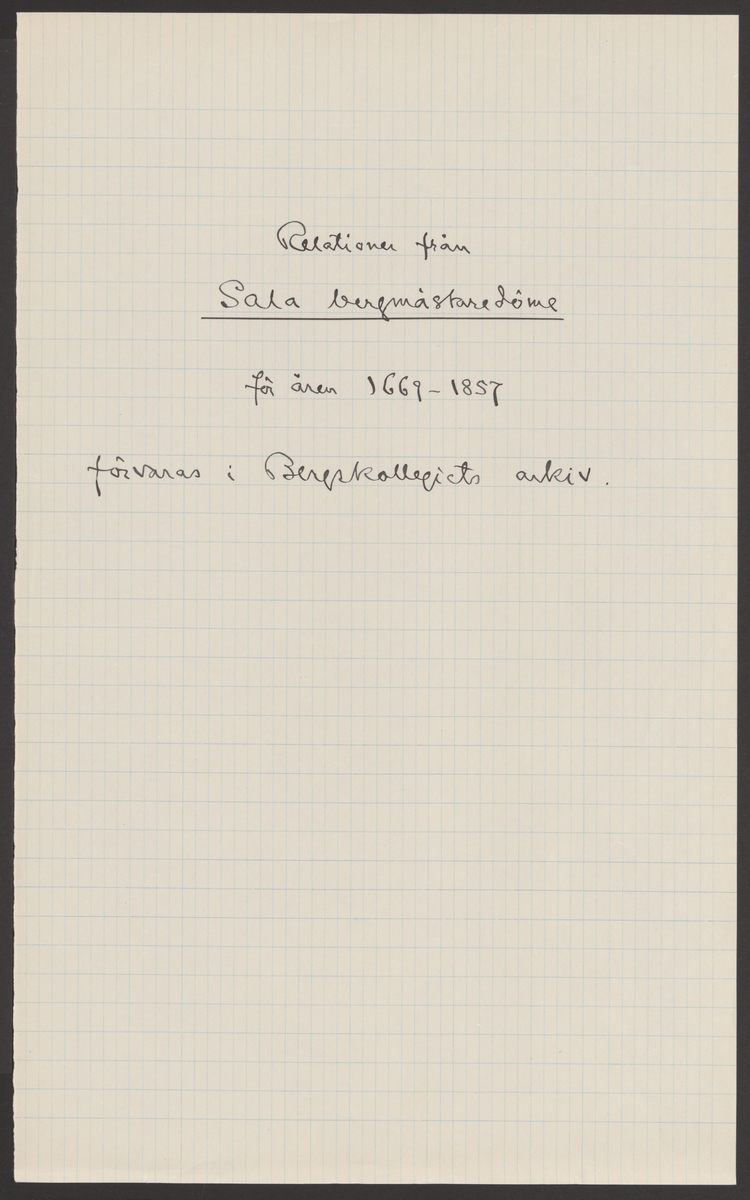 Relationer från
Sala bergmästaredöme
för åren 1669-1857
förvaras i Bergskollegiets arkiv.